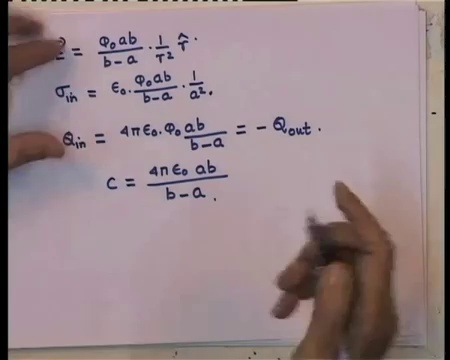 = Φ₀ab/(b-a) · 1/r² r̂.
σin = ε₀. Φ₀ab/(b-a) · 1/a².
Qin = 4πε₀.Φ₀ab/(b-a) = - Qout.
C = 4πε₀ab/(b-a).